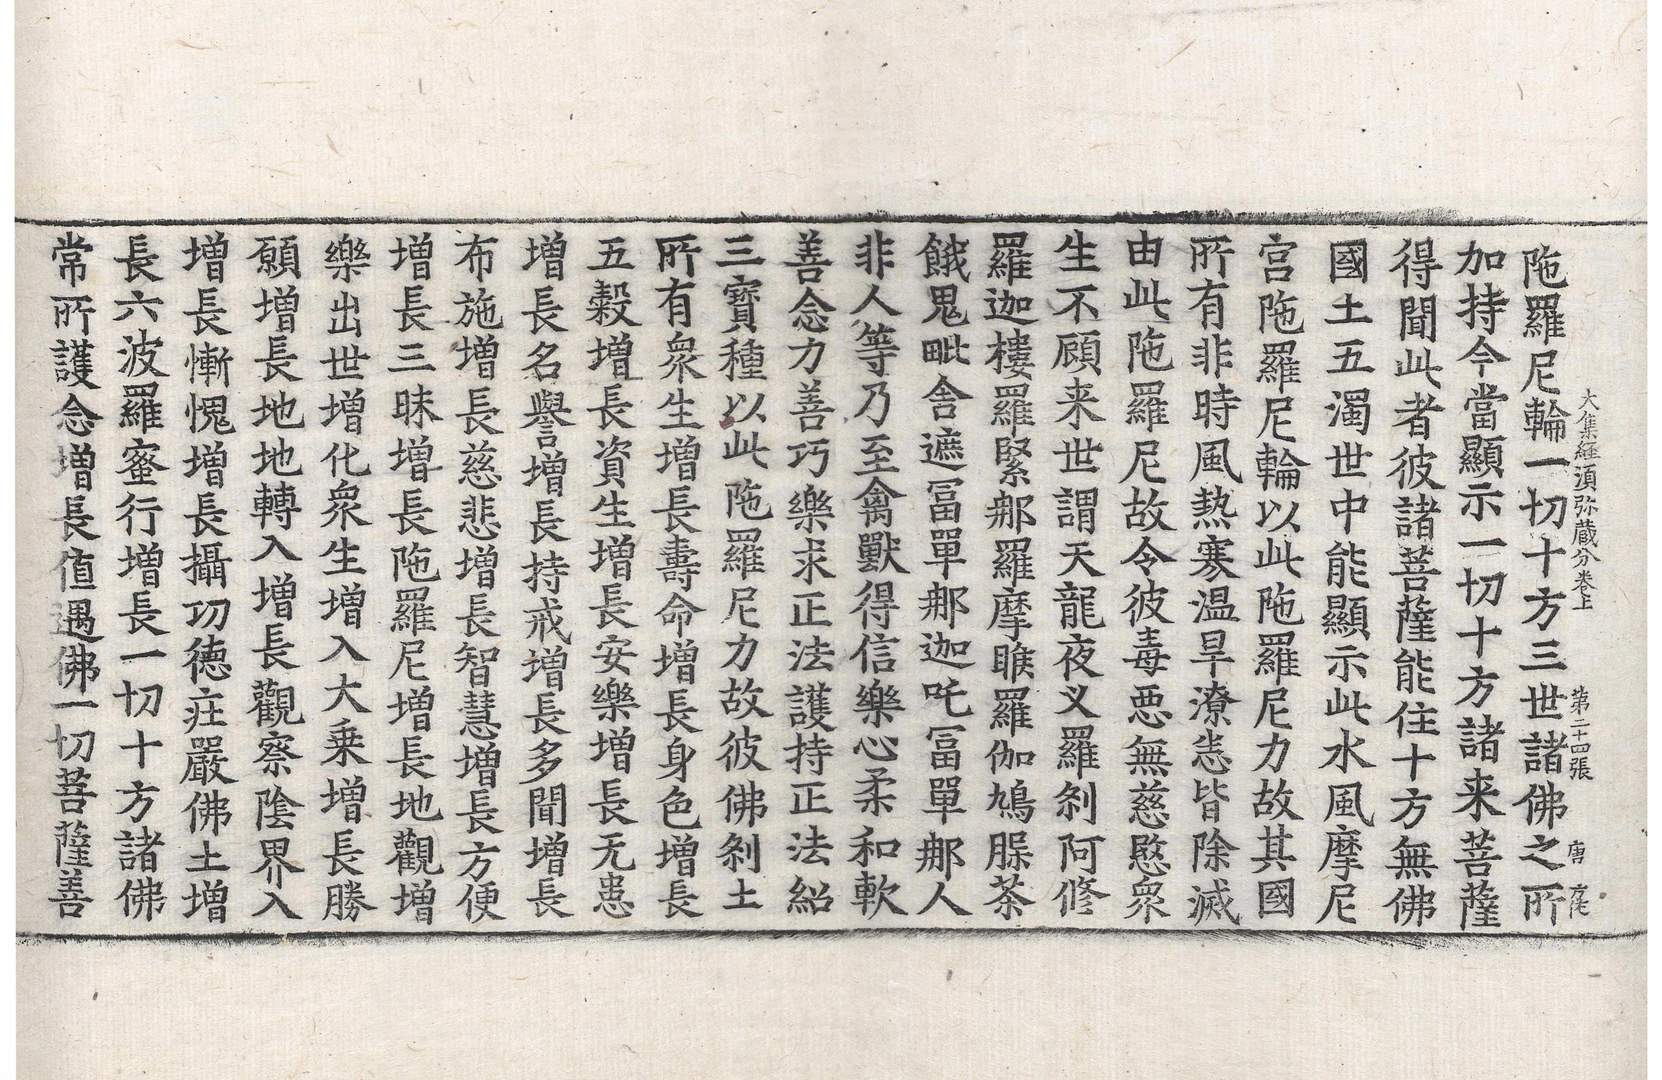 大集經須弥蔵分卷上 第二十四張 唐
陁羅尼輪一切十方三世諸佛之所
加持今當顯示一切十方諸来菩薩
得聞此者彼諸菩薩能住十方無佛
國土五濁世中能顯示此水風摩尼
宮陁羅尼輪以此陁羅尼力故其國
所有非時風熱寒温旱潦恙皆除滅
由此陁羅尼故令彼毒悪無慈愍衆
生不顧来世謂天龍夜叉羅剎阿修
羅迦樓羅緊那羅摩睺羅伽鳩脲茶
餓鬼毗舍遮冨單那迦吒冨單那人
非人等乃至禽獸得信樂心柔和軟
善念力善巧樂求正法護持正法紹
三寳種以此陁羅尼力故彼佛剎土
所有衆生增長壽命增長身色增長
五穀增長資生增長安樂增長无患
增長名譽增長持戒增長多聞增長
布施增長慈悲增長智慧增長方便
增長三昧增長陁羅尼增長地觀增
樂出世增化衆生增入大乗增長勝
願增長地地轉入增長觀察陰界入
增長慚愧增長攝功德莊嚴佛土增
長六波羅蜜行增長一切十方諸佛
常所護念增長值遇佛一切菩薩善